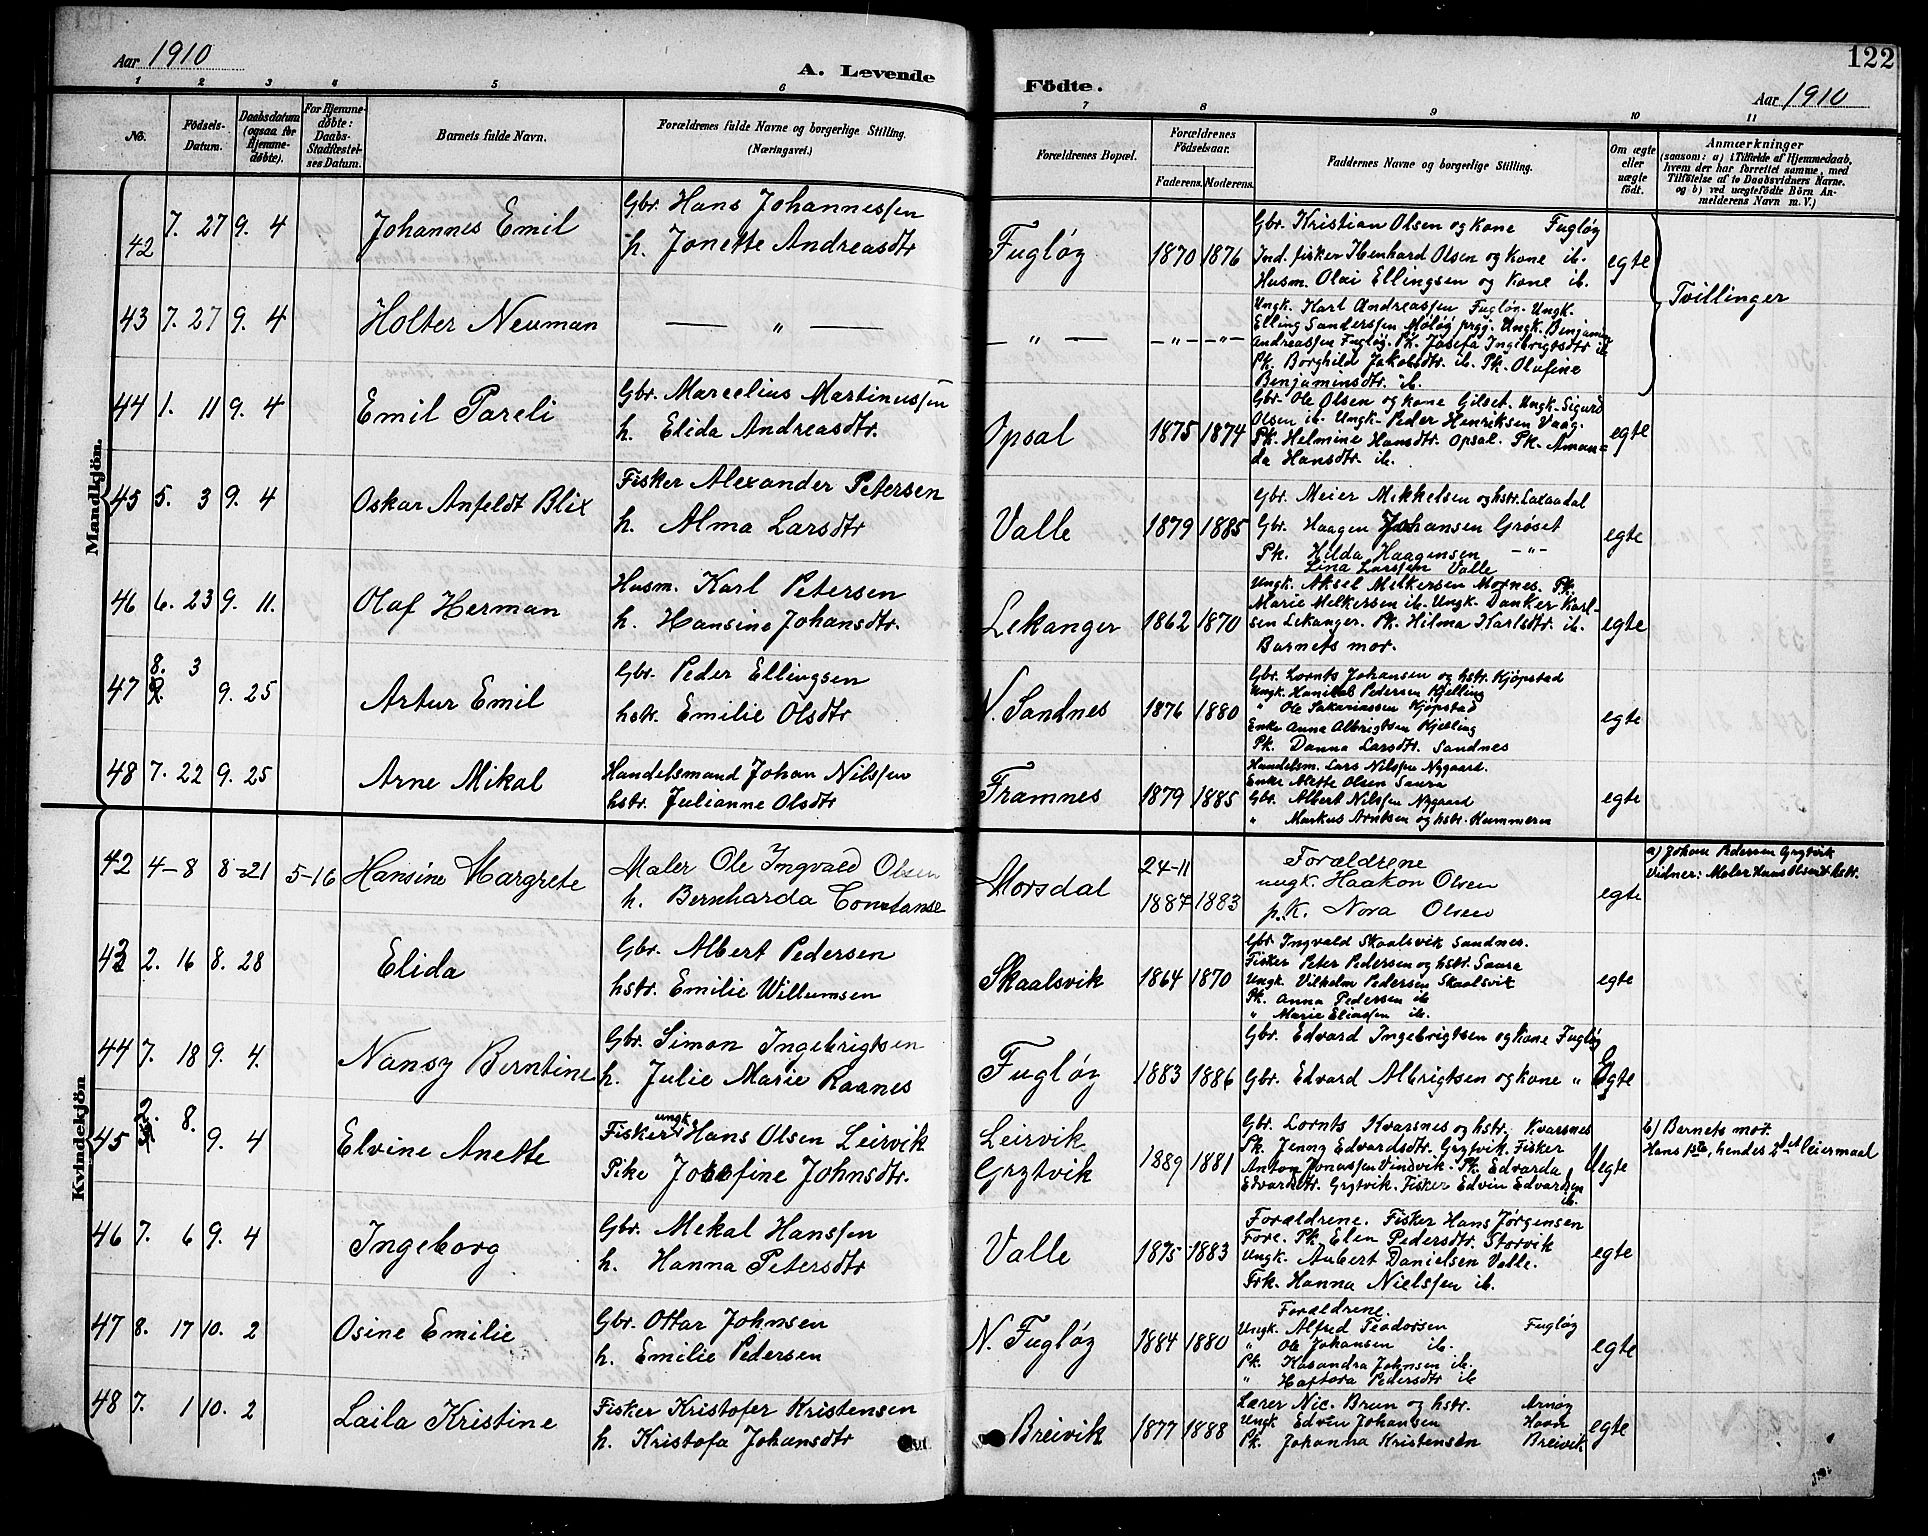 Aar 1910
A. Levende
Födte.
122
Aar 1910
1 2 3 4 5 6 7 8 9 10 11
No.
Födsels-Datum.
Daabsdatum (ogsaa for Hjemme-døbte).
For Hjemme-døbte: Daabs-Stadfæstel-ses Datum.
Barnets fulde Navn.
Forældrenes fulde Navne og borgerlige Stilling. (Næringsvei.)
Forældrenes Bopæl.
Forældrenes Födselsaar.
Faderens. Moderens.
Faddernes Navne og borgerlige Stilling.
Om ægte eller uægte födt.
Anmærkninger
(saasom: a) i Tilfælde af Hjemmedaab, hvem der har forrettet samme, med Tilföielse af to Daabsvidners Navne. og b) ved uægtefödte Börn An-melderens Navn m. V.)
Mandkjön.
42 7. 27 9. 4 Johannes Emil
Gbr. Hans Johannessen
h. Jonette Andreasdtr
Fugløy 1870 1876
Gbr. Kristian Olsen og kone Fugløy
Ind. fisker Ibenhard Olsen og kone ib.
Husm. Olai Ellingsen og kone ib.
egte
Tvillinger
43 7. 27 9. 4 Holter Neuman
— " —
— " — — " — — " —
Ungk. Karl Andreassen Fugløy. Ungk.
Elling Sanderssen Meløy prgj. Ungk. Benjamin
Andreassen Fugløy. Pk. Josefa Ingebrigtsdtr ib
Pk. Borghild Jakobsdtr. ib. Pk. Olufine
Benjaminsdtr. ib.
44 1. 11 9. 4 Emil Pareli
Gbr. Marcelius Martinussen
h. Elida Andreasdtr.
Opsal 1875 1874
Gbr. Ole Olsen og kone Gilset. Ungk. Sigurd
Olsen ib. Ungk. Peder Henriksen Vaag.
Pk. Helmine Hansdtr. Opsal. Pk. Aman=
da Hansdtr ib.
egte
45 5. 3 9. 4 Oskar Anfeldt Blix
Fisker Alexander Petersen
h. Alma Larsdtr
Valle 1879 1885
Gbr. Meier Mikkelsen og hstr. Laxaadal
Gbr. Haagen Johansen Grøset
Pk. Hilda Haagensen — " —
Lina Larssen Valle
egte
46 6. 23 9. 11. Olaf Herman
Husm. Karl Petersen
h. Hansine Johansdtr.
Lekanger 1862 1870
Ungk. Aksel Melkersen Mornes. Pk.
Marie Melkersen ib. Ungk. Danker Karl-
sen Lekanger. Pk. Hilma Karlsdtr. ib.
Barnets mor.
egte
47 8. 3 9. 25 Artur Emil
Gbr. Peder Ellingsen
hstr. Emilie Olsdtr
N. Sandnes 1876 1880
Gbr. Lornts Johansen og hstr. Kjøpstad
Ungk. Hanikal Pedersen Kjelling
" Ole Sakariassen Kjøpstad
Enke Anna Albrigtsen Kjelling
Pk. Danna Larsdtr. Sandnes
egte
48 7. 22 9. 25 Arne Mikal
Handelsmand Johan Nilssen
hstr. Julianne Olsdtr
Framnes 1879 1885
Handelsm. Lars Nilssen Nygaard.
Enke Mette Olsen Saura
Gbr. Albert Nilssen Nygaard
" Markus Arntsen og hstr. Hammern
egte
Kvindekjön
42 4-8 8-21 5-16 Hansine Margrete
Maler Ole Ingvald Olsen
h. Bernharda Constanse
Morsdal 24-11 1887 1883
Forældrene
ungk. Haakon Olsen
p.k. Nora Olsen
egte
a) Johan Pedersen Grytvik
Vidner: Maler Hans Olsen & hstr.
43 2. 16 8. 28 Elida
Gbr. Albert Pedersen
hstr. Emilie Willumsen
Skaalsvik 1864 1870
Gbr. Ingvald Skaalsvik Sandnes.
Fisker Peter Pedersen og hstr. Saura
Ungk. Vilhelm Pedersen Skaalsvik
Pk. Anna Pedersen ib
" Marie Eliassen ib.
egte
44 7. 18 9. 4. Nansy Berntine
Gbr. Simon Ingebrigtsen
h. Julie Marie Raanes
Fugløy 1883 1886
Gbr. Edvard Ingebrigtsen og kone Fugløy
Gbr. Edvard Albrigtsen og kone "
Egte
45 2. 8. 9. 4 Elvine Anette
Fisker ungk. Hans Olsen Leirvik
Pike Josefine Johnsdtr.
Leirvik
Grytvik
1889 1881
Gbr. Lornts Kvarsnes og hstr. Kvarsnes
Pk. Jenny Edvardsdtr. Grytvik. Fisker
Anton Jonassen Vindvik. Pk. Edvarda
Edvardsdtr. Grytvik. Fisker Edvin Edvardsen ib.
Uegte
b) Barnets mor.
Hans 1ste, hendes 2det leiermaal
46 7. 6 9. 4 Ingeborg
Gbr. Mekal Hanssen
h. Hanna Petersdtr
Valle 1875 1883
Forældrene. Fisker Hans Jørgensen
Fore. Pk. Elen Pedersdtr. Storvik
Ungk. Aubert Danielsen Valle.
Frk. Hanna Nielssen ib.
egte
47 8. 17 10. 2 Osine Emilie
Gbr. Ottar Johnsen
h. Emilie Pedersen
N. Fugløy 1884 1880
Forældrene.
Ungk. Alfred Teodorsen Fugløy
" Ole Johansen ib.
Pk. Kasandra Johnsen ib.
" Haftora Pedersdtr ib
egte
48 7. 1 10. 2 Laila Kristine
Fisker Kristofer Kristensen
h. Kristofa Johansdtr
Breivik 1877 1888
Lærer Nic. Brun og hstr. Arnøy
Ungk Edvin Johansen Haan
Pk. Johanna Kristensen Breivik
egte